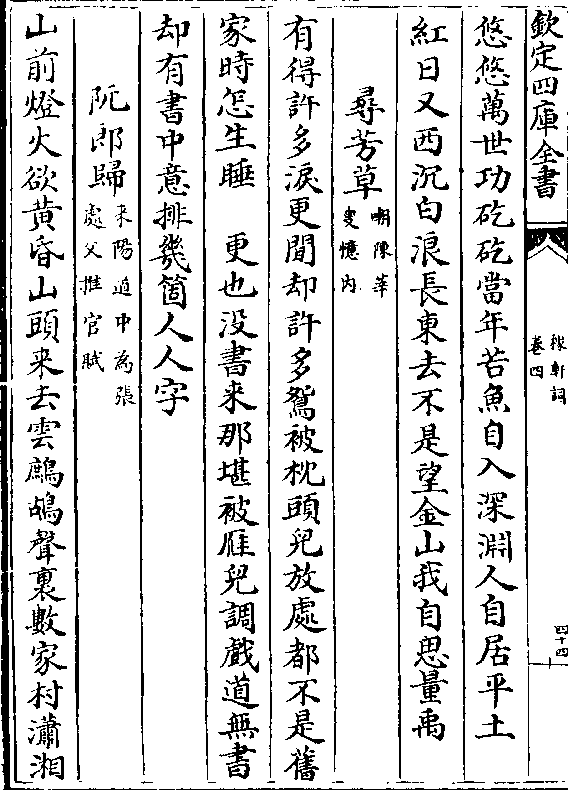 欽定四庫全書
稼軒詞
卷四
四十四
悠悠萬世功矻矻當年苦魚自入深淵人自居平土
紅日又西沉白浪長東去不是望金山我自思量禹
尋芳草嘲陳莘
叟憶内
有得許多淚更閒却許多鴛被枕頭兒放處都不是舊
家時怎生睡　更也没書来那堪被雁兒調戲道無書
却有書中意排幾箇人人字
阮郎歸耒陽道中為張
處父推官賦
山前燈火欲黄昏山頭来去雲鷓鴣聲裏數家村瀟湘